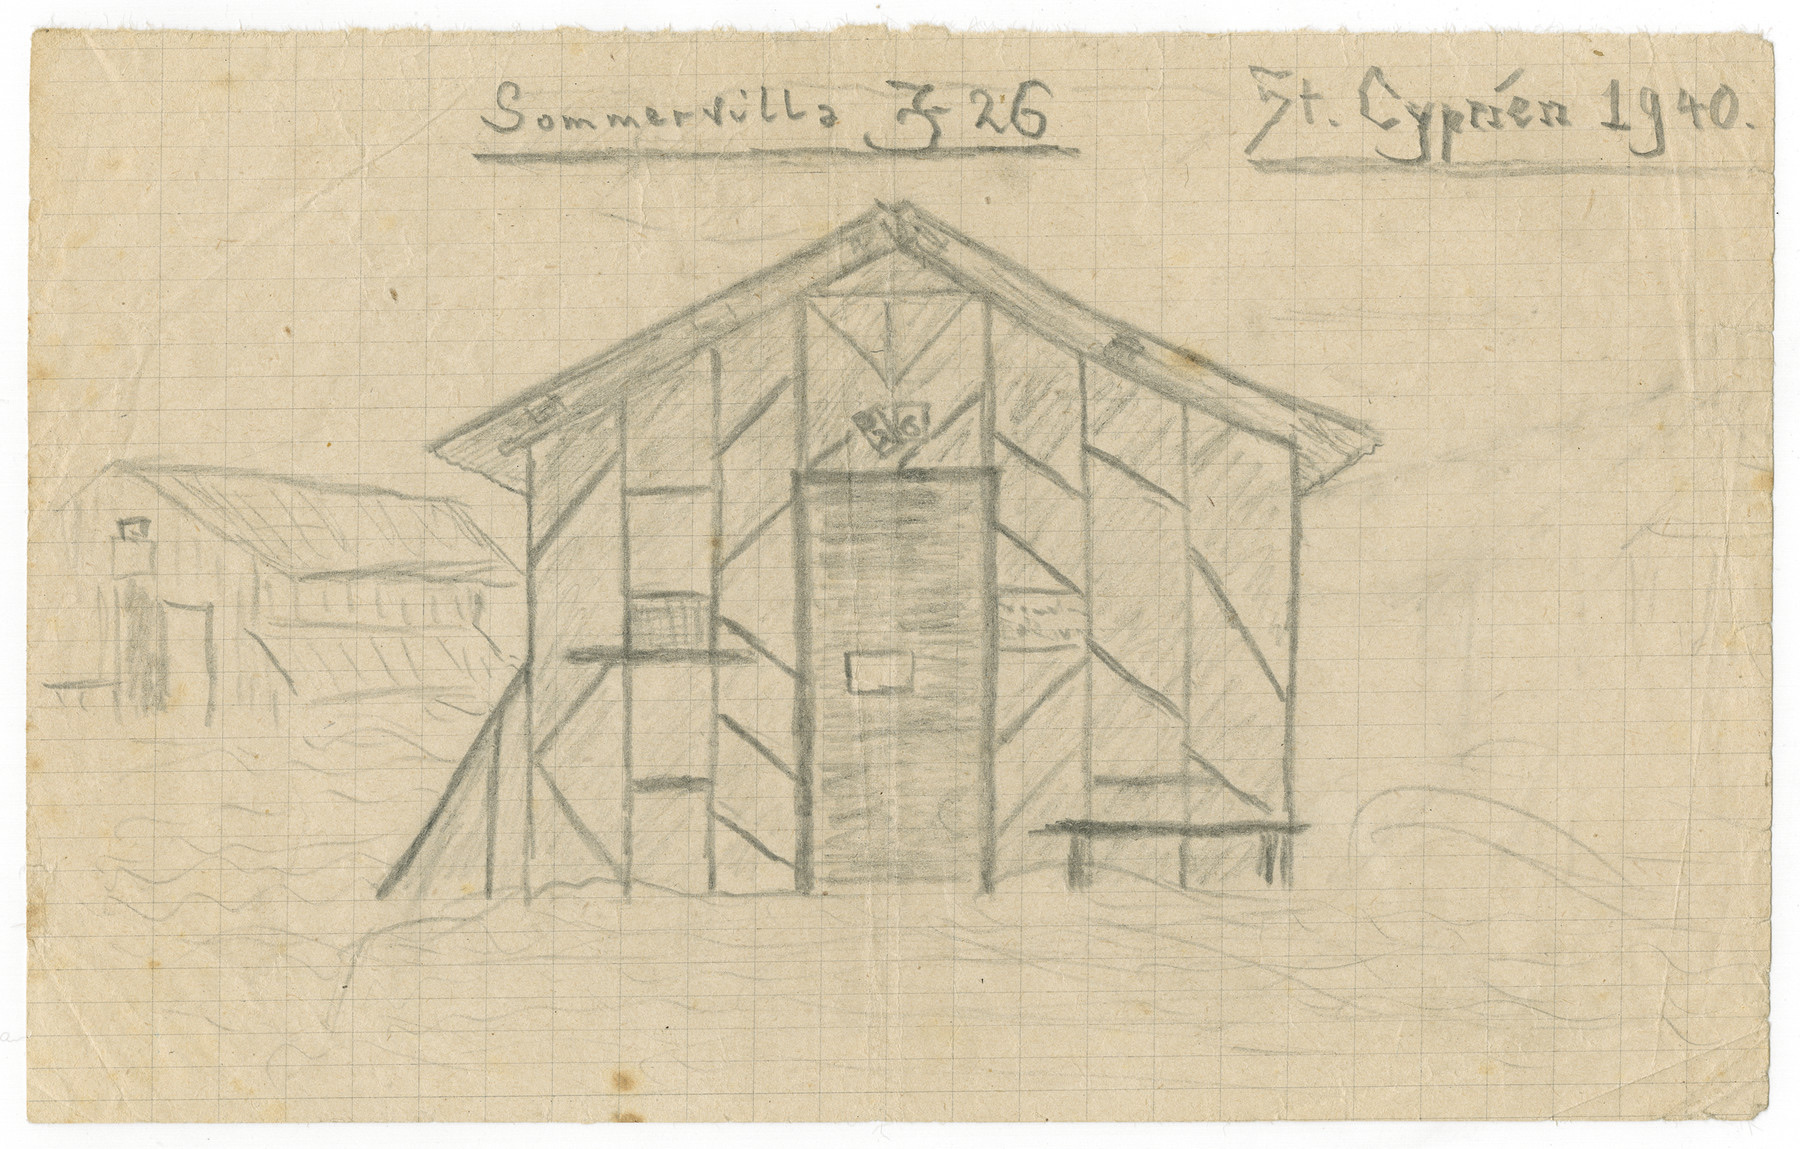 Sommervilla J 26
St. Cyprien 1940.
26